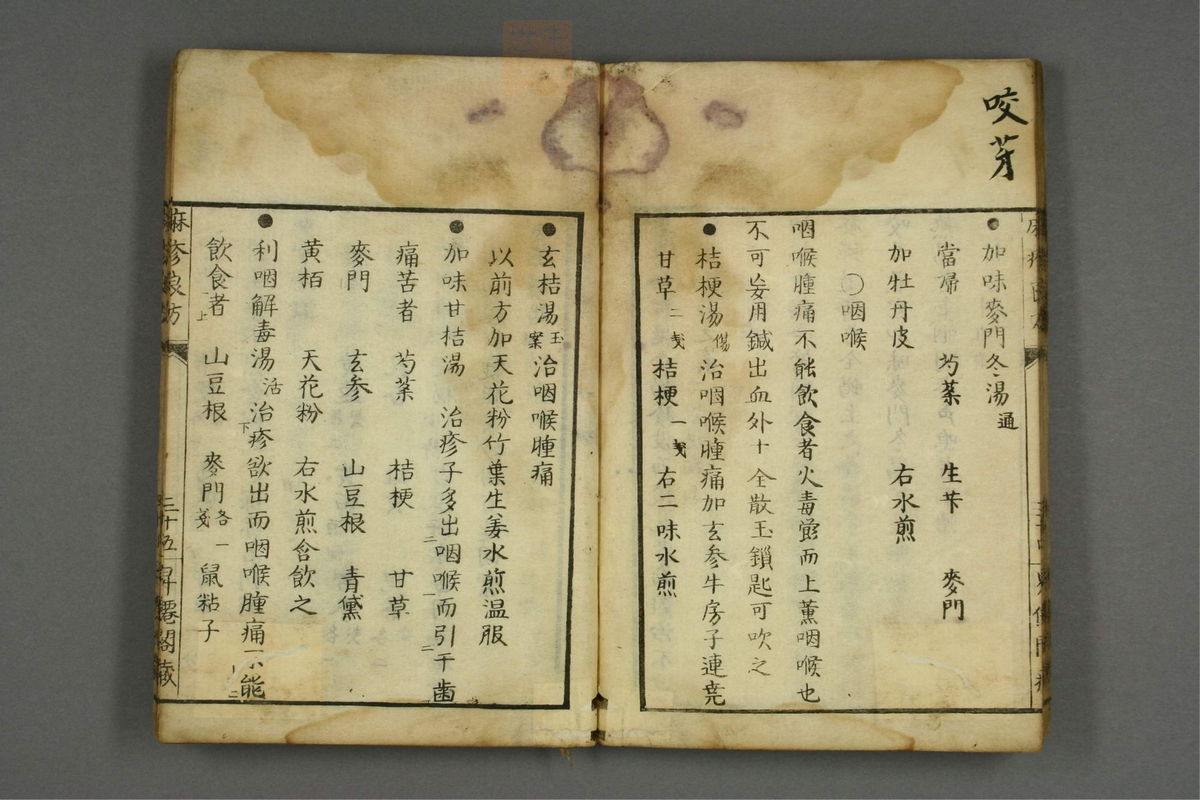 咬芽
●加味麥門冬湯通
當帰 芍薬 生芐 麥門
加牡丹皮 右水煎
〇咽喉
咽喉腫痛不能飲食者火毒欝而上薫咽喉也
不可妄用鍼出血外十全散玉鎖匙可吹之
●桔梗湯傷治咽喉腫痛加玄参牛房子連堯
甘草二戔 桔梗一戔 右二味水煎
●玄桔湯玉案治咽喉腫痛
以前方加天花粉竹葉生姜水煎温服
●加味甘桔湯 治疹子多出咽喉而引干歯
痛苦者 芍薬 桔梗 甘草
麥門 玄参 山豆根 青黛
黄栢 天花粉 右水煎含飲之
●利咽解毒湯活治疹欲出而咽喉腫痛不能
飲食者 山豆根 麥門各一戔 鼠粘子
麻疹良方
二十五